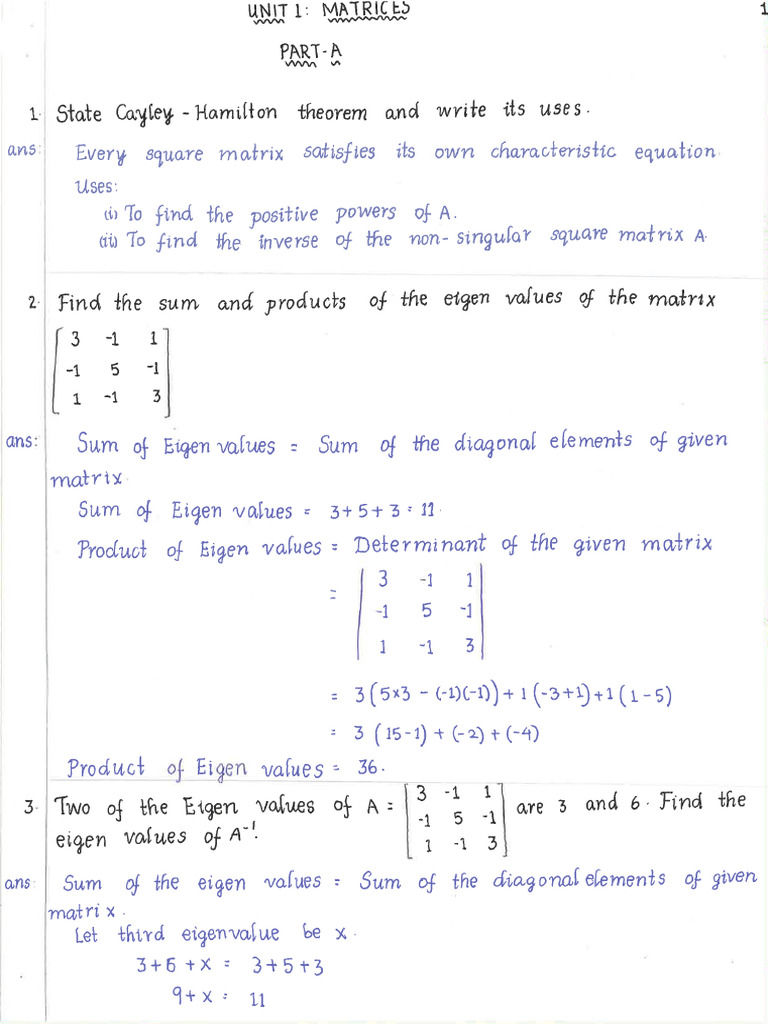 UNIT 1: MATRICES
1
PART-A
1. State Cayley - Hamilton theorem and write its uses.
ans: Every square matrix satisfies its own characteristic equation.
Uses:
(i) To find the positive powers of A.
(ii) To find the inverse of the non-singular square matrix A.
2. Find the sum and products of the eigen values of the matrix
3 -1 1
-1 5 -1
1 -1 3
ans: Sum of Eigen values = Sum of the diagonal elements of given
matrix.
Sum of Eigen values = 3+5+3 = 11.
Product of Eigen values = Determinant of the given matrix
= | 3 -1 1 |
| -1 5 -1 |
| 1 -1 3 |
= 3(5×3 - (-1)(-1)) + 1(-3+1) + 1(1-5)
= 3 (15-1) + (-2) + (-4)
Product of Eigen values = 36.
3. Two of the Eigen values of A = [3 -1 1
-1 5 -1
1 -1 3] are 3 and 6. Find the
eigen values of A⁻¹.
ans: Sum of the eigen values = Sum of the diagonal elements of given
matrix.
Let third eigenvalue be x.
3+6+x = 3+5+3
9+x = 11